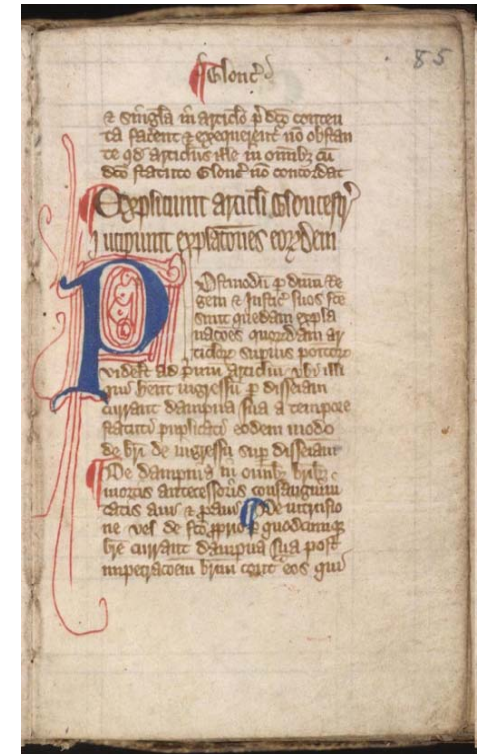 85
¶ Glouc̃
⁊ singl̃a in articl̃o p̃dc̃o conten
ta facent ⁊ exequent̃ nõ obstan
te qd̃ articl̃us ille in om̃ibȝ cũ
dc̃o statuto Glouc̃ nõ concordat
Expliciunt articl̃i Gloucestr̃
Incipiunt expl̃ac̃ones eorȝdem
Postmodũ p̃ dñm Re
gem ⁊ Justic̃ suos fc̃e
sunt quedam expla
nac̃oes quorȝdam ar
ticl̃orȝ sup̃ius po
videlt̃ ad p̃mũ articl̃m vbi illi
qui hent̃ ingressũ p̃ disseiam
currant dampna sua a tempore
statuti puplicati eodem modo
de bri de ingressu sup̃ disseiam
¶ De dampnis in om̃ibȝ bribȝ
mortis antecessoris consanguini
tatis aui ⁊ p̃aui ¶ De intrusio
ne vel de fc̃o p̃prio p̃ quodcumqȝ
br̃e currant dampna sua post
impetrac̃oem br̃ium cont̃ eos qui